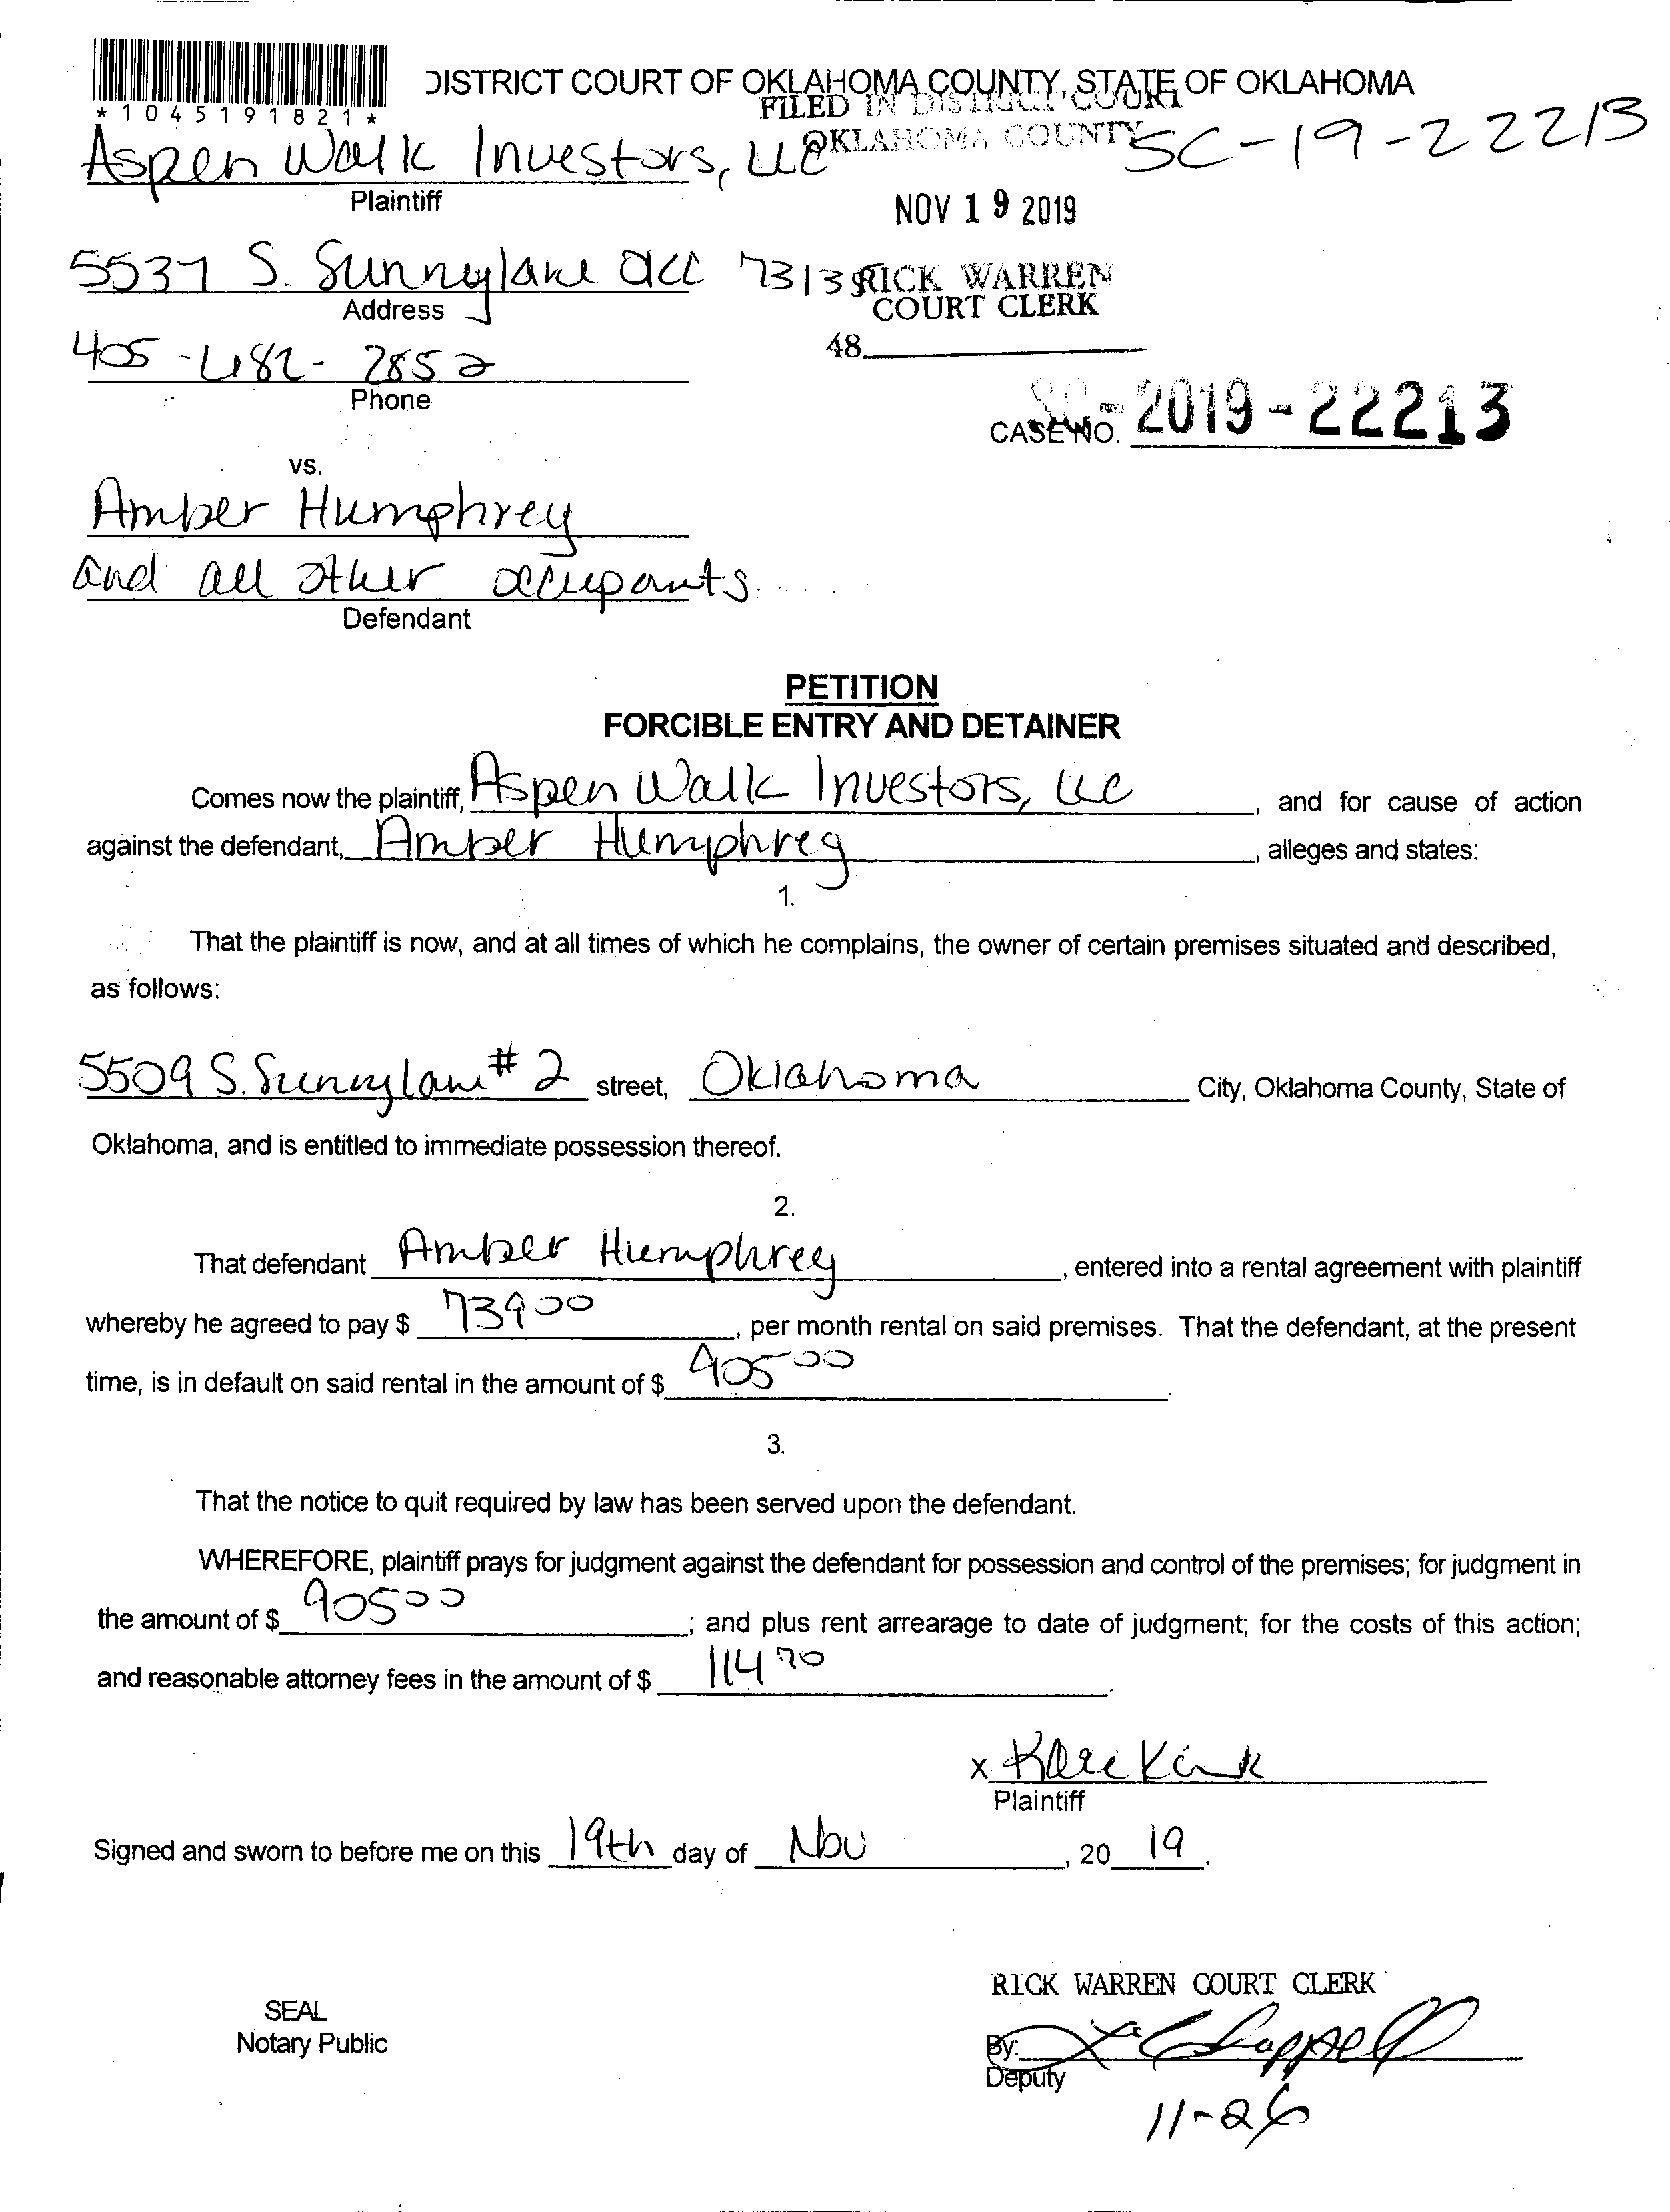 DISTRICT COURT OF OKLAHOMA COUNTY, STATE OF OKLAHOMA
*1045191821*
FILED IN DISTRICT COURT
OKLAHOMA COUNTY
SC-19-22213
Aspen Walk Investors, LLC
Plaintiff
NOV 19 2019
5537 S. Sunnylane OKC 7313
RICK WARREN
COURT CLERK
Address
48
405-682-2852
Phone
CASE NO. SC-2019-22213
vs.
Amber Humphrey
and all other occupants
Defendant
PETITION
FORCIBLE ENTRY AND DETAINER
Comes now the plaintiff, Aspen Walk Investors, LLC, and for cause of action
against the defendant, Amber Humphrey, alleges and states:
1.
That the plaintiff is now, and at all times of which he complains, the owner of certain premises situated and described,
as follows:
5509 S. Sunnylane #2 street, Oklahoma City, Oklahoma County, State of
Oklahoma, and is entitled to immediate possession thereof.
2.
That defendant Amber Humphrey, entered into a rental agreement with plaintiff
whereby he agreed to pay $ 739 00, per month rental on said premises. That the defendant, at the present
time, is in default on said rental in the amount of $ 905 00.
3.
That the notice to quit required by law has been served upon the defendant.
WHEREFORE, plaintiff prays for judgment against the defendant for possession and control of the premises; for judgment in
the amount of $ 905 00; and plus rent arrearage to date of judgment; for the costs of this action;
and reasonable attorney fees in the amount of $ 114 70.
x
Plaintiff
Signed and sworn to before me on this 19th day of Nov, 20 19.
RICK WARREN COURT CLERK
SEAL
Notary Public
By:
Deputy
11-26